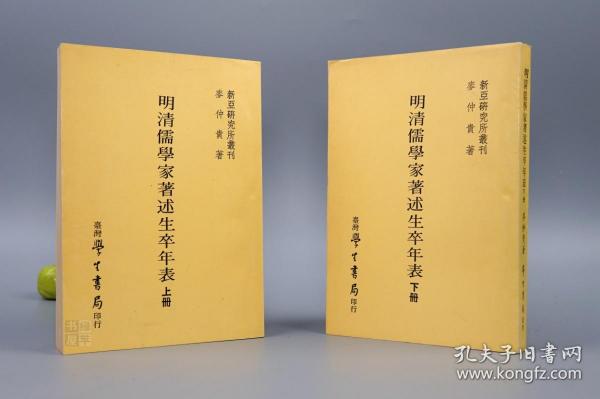 新亞研究所叢刊
麥仲貴著
明清儒學家著述生卒年表 上冊
臺灣學生書局印行
新亞研究所叢刊
麥仲貴著
明清儒學家著述生卒年表 下冊
臺灣學生書局印行
孔夫子旧书网
www.kongfz.com